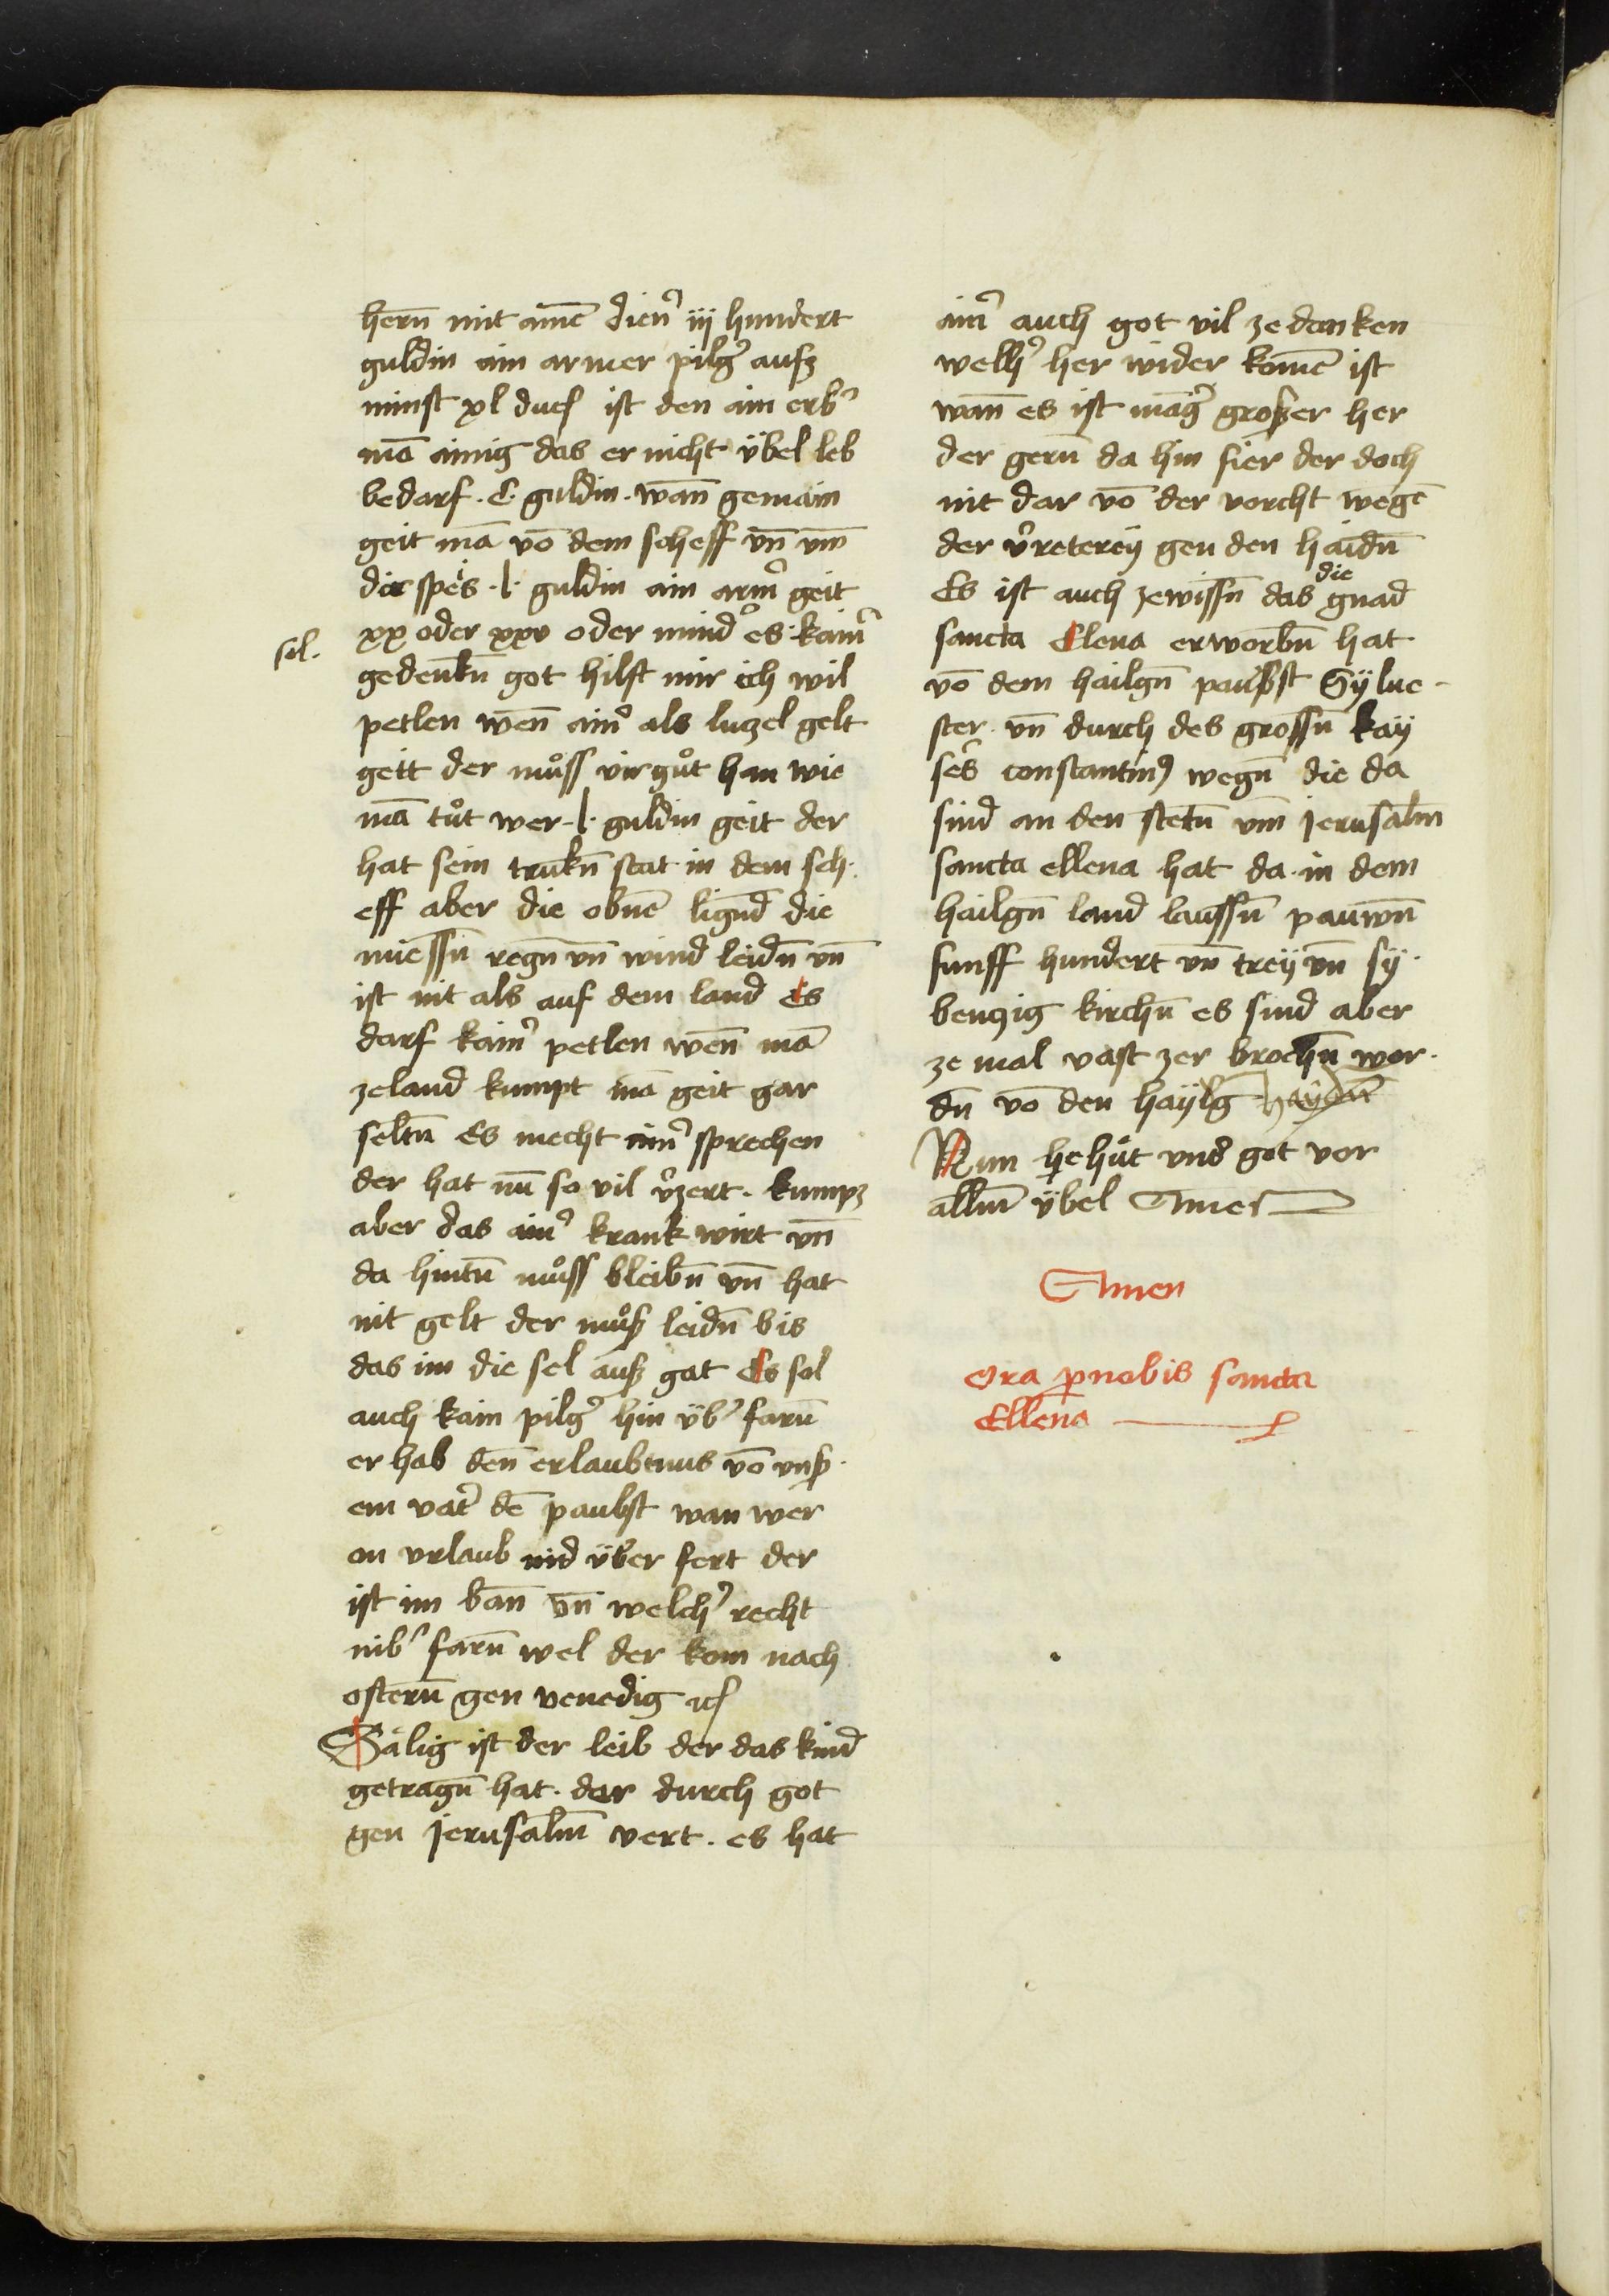 hern̄ mit ainē dien᷑ iij hundert
guldin ain armer pilg᷑ aufz
minst xl duc ist den ain erb᷑
mā ainig das er nicht v̈bel leb
bedarf · C · guldin · wan̄ gemain
geit mā vō dem scheff vn̄ vm̄
die speis · l · guldin ain arm᷑ geit
xx oder xxv oder mind᷑ es · kain᷑
sol.
gedenkn̄ got hilft mir ich wil
petlen wen̄ ain᷑ als luczel gelt
geit der mu̇ss vir gůt han wie
mā tůt wer · l · guldin geit der
hat sein trukn̄ stat in dem sch·
eff aber die obnē lignd̄ die
miessn̄ regn̄ vn̄ wind leidn̄ vn̄
ist nit als auf dem land Es
darf kain᷑ petlen wen̄ mā
zeland kumpt mā geit gar
seltn̄ Es mecht ain᷑ sprechen
der hat nu̅ so vil v᷑zert · kumpz
aber das ain᷑ krank wirt vn̄
da hintn̄ můss bleibn̄ vn̄ hat
nit gelt der můß leidn̄ bis
das im die sel auß gat Es sol
auch kain pilg᷑ hin v̈b᷑ farn̄
er hab den̄ erlaubnus vō vnß·
em vat᷑ dē paubst wan wer
on vrlaub nid v̈ber fert der
ist im ban̄ vn̄ welch᷑ recht
nib᷑ farn̄ wel der kom nach
ostern̄ gen venedig ꝛc
Sälig ist der leib der das kind
getragn̄ hat · dar durch got
gen jerusalm̄ vert · es hat
ain᷑ auch got vil ze danken
welh᷑ her wider komē ist
wan̄ es ist mag᷑ großer her
der gern̄ da hin fier der doch
nit dar vō der vorcht wegē
der v᷑reterey gen den haidn̄
Es ist auch zewissn̄ das die gnad
sancta Elena erworbn̄ hat
vō dem hailgn̄ paußst Syl​ue-
ster · vn̄ durch des grossn̄ kay
sers constantinꝰ wegn̄ die da
sind an den stetn̄ vm̄ jerusalm̄
sancta ellena hat da · in dem
hailgn̄ land laussn̄ pauwn̄
funff hundert vn̄ trey vn̄ sy·
benczig kirchn̄ es sind aber
ze mal vast zer brochn̄ wor·
dn̄ vō den haÿlg haydn̄
Nun behüt vnd got vor
allm̄ v̈bel Amen
Amen
Ora ꝓnobis sancta
Ellena